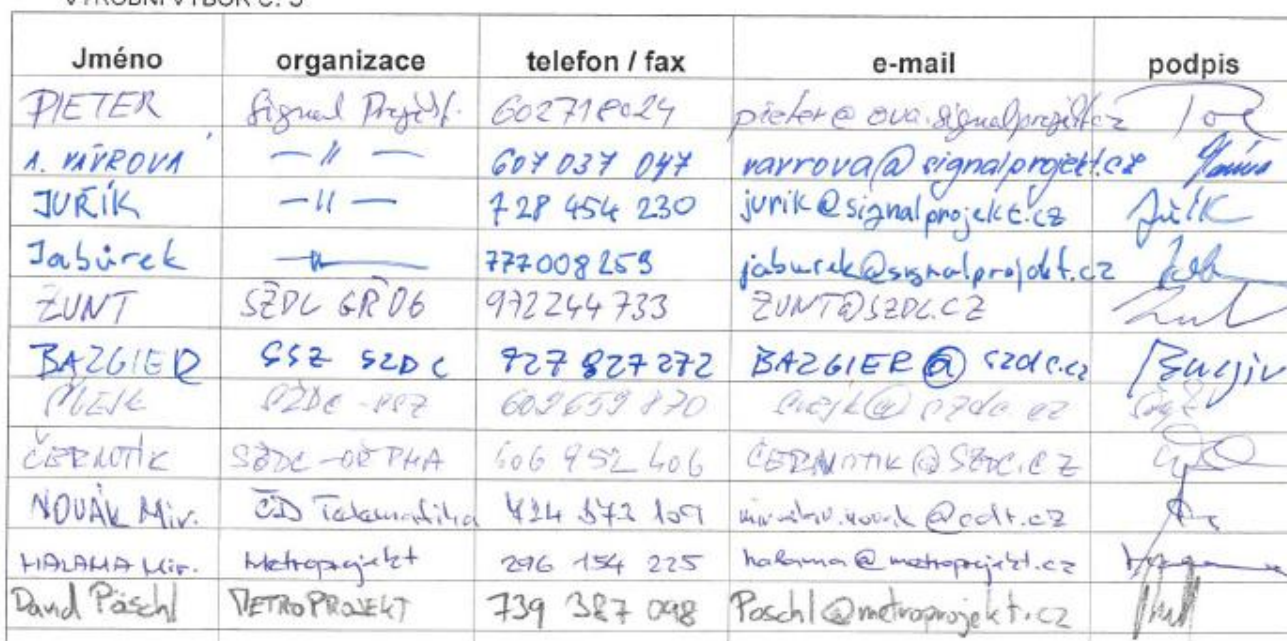 VÝROBNÍ VÝBOR Č. 3
Jméno organizace telefon / fax e-mail podpis
PIETER Signal Projekt. 602718024 pieter@ova.signalprojekt.cz
A. VÁVROVÁ — 〃 — 607 037 047 vavrova@signalprojekt.cz
JUŘÍK — 〃 — 728 454 230 jurik@signalprojekt.cz
Jabůrek — 〃 — 777008259 jaburek@signalprojekt.cz
ŽUNT SŽDC GŘ O6 972244733 ZUNT@SZDC.CZ
BAZGIER SSZ SZDC 727 827 272 BAZGIER@szdc.cz
SŽDC - SSZ 602659870
SŽDC - OŘ PHA 606 952 606
NOVÁK Mir. ČD Telematika @cdt.cz
HALAMA Mir. Metroprojekt 296 154 225 halama@metroprojekt.cz
David Pöschl METROPROJEKT 739 387 098 Poschl@metroprojekt.cz